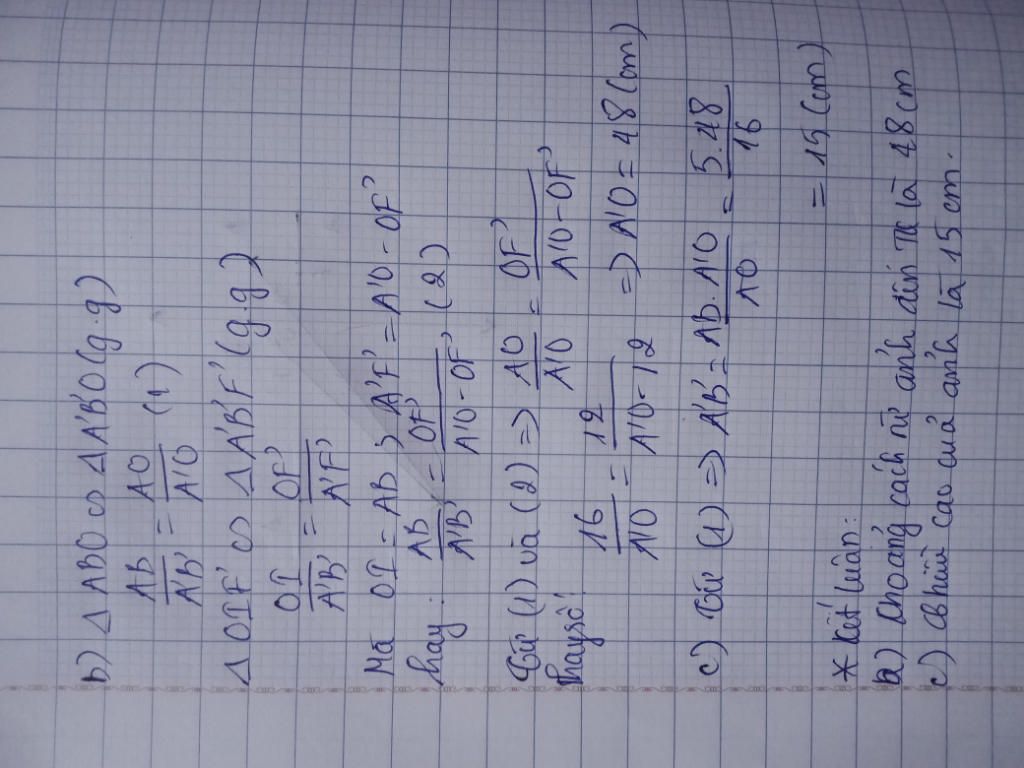 b) Δ ABO ∽ Δ A'B'O (g.g)
AB/A'B' = AO/A'O (1)
Δ OIF' ∽ Δ A'B'F' (g.g)
OI/A'B' = OF'/A'F'
Mà OI = AB ; A'F' = A'O - OF'
hay : AB/A'B' = OF'/A'O - OF' (2)
Từ (1) và (2) => AO/A'O = OF'/A'O - OF'
Thay số:
16/A'O = 12/A'O - 12 => A'O = 48 (cm)
c) Từ (1) => A'B' = AB.A'O/AO = 5.48/16
= 15 (cm)
* Kết luận:
a) Khoảng cách từ ảnh đến TK là 48cm
c) Chiều cao của ảnh là 15 cm.